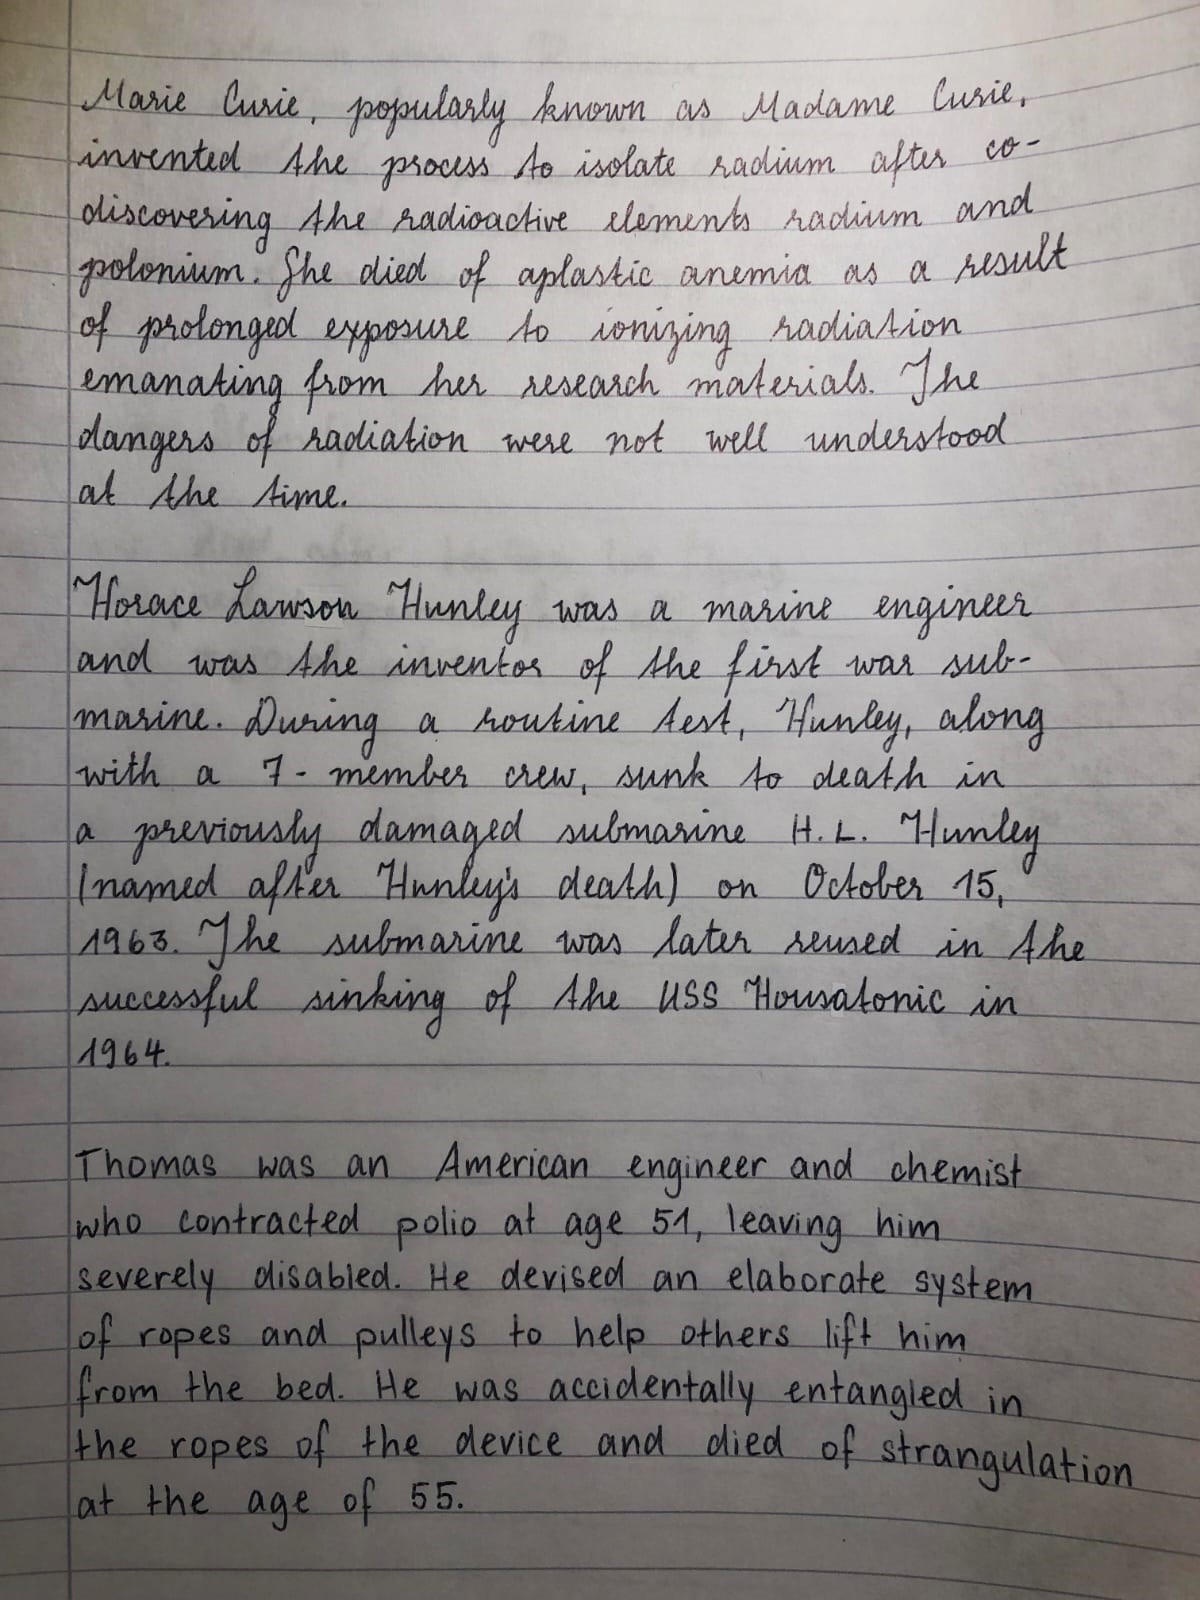 Marie Curie, popularly known as Madame Curie,
invented the process to isolate radium after co-
discovering the radioactive elements radium and
polonium. She died of aplastic anemia as a result
of prolonged exposure to ionizing radiation
emanating from her research materials. The
dangers of radiation were not well understood
at the time.
Horace Lawson Hunley was a marine engineer
and was the inventor of the first war sub-
marine. During a routine test, Hunley, along
with a 7-member crew, sunk to death in
a previously damaged submarine H. L. Hunley
(named after Hunley's death) on October 15,
1963. The submarine was later reused in the
successful sinking of the USS Housatonic in
1964.
Thomas was an American engineer and chemist
who contracted polio at age 51, leaving him
severely disabled. He devised an elaborate system
of ropes and pulleys to help others lift him
from the bed. He was accidentally entangled in
the ropes of the device and died of strangulation
at the age of 55.